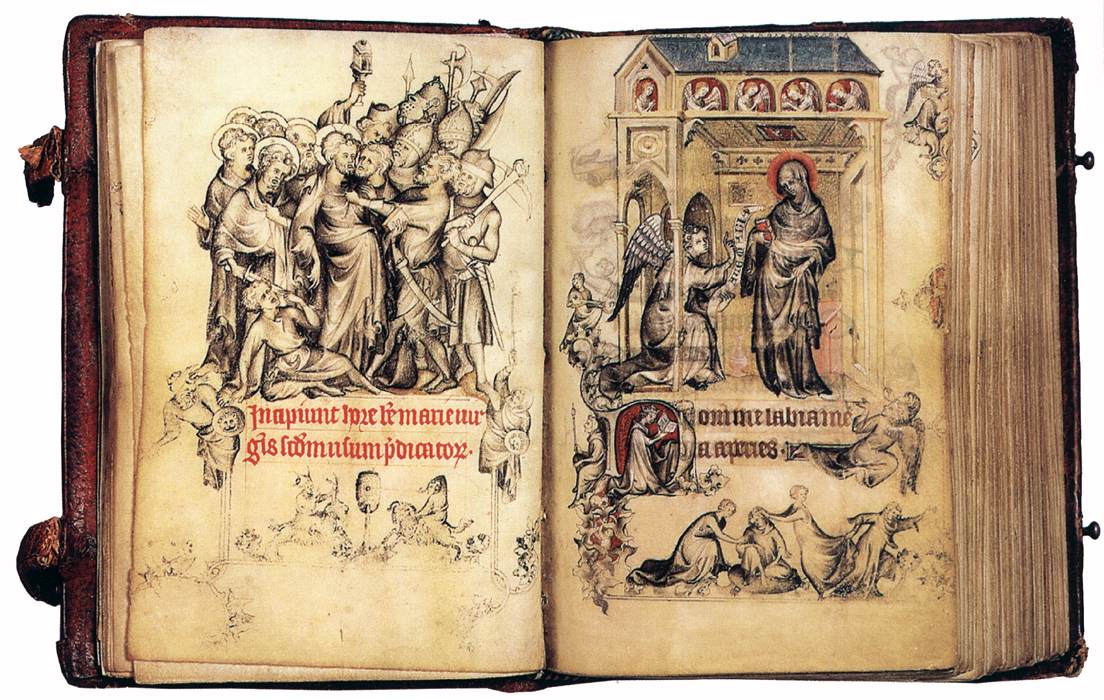 Incipiunt hore be marie uir
gis scdm usum pdicatoꝝ.
Domine labia me
a aperies.